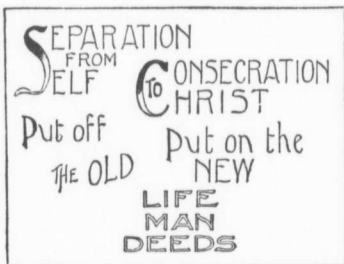 SEPARATION
FROM
SELF
TO CONSECRATION
CHRIST
Put off
THE OLD
Put on the
NEW
LIFE
MAN
DEEDS